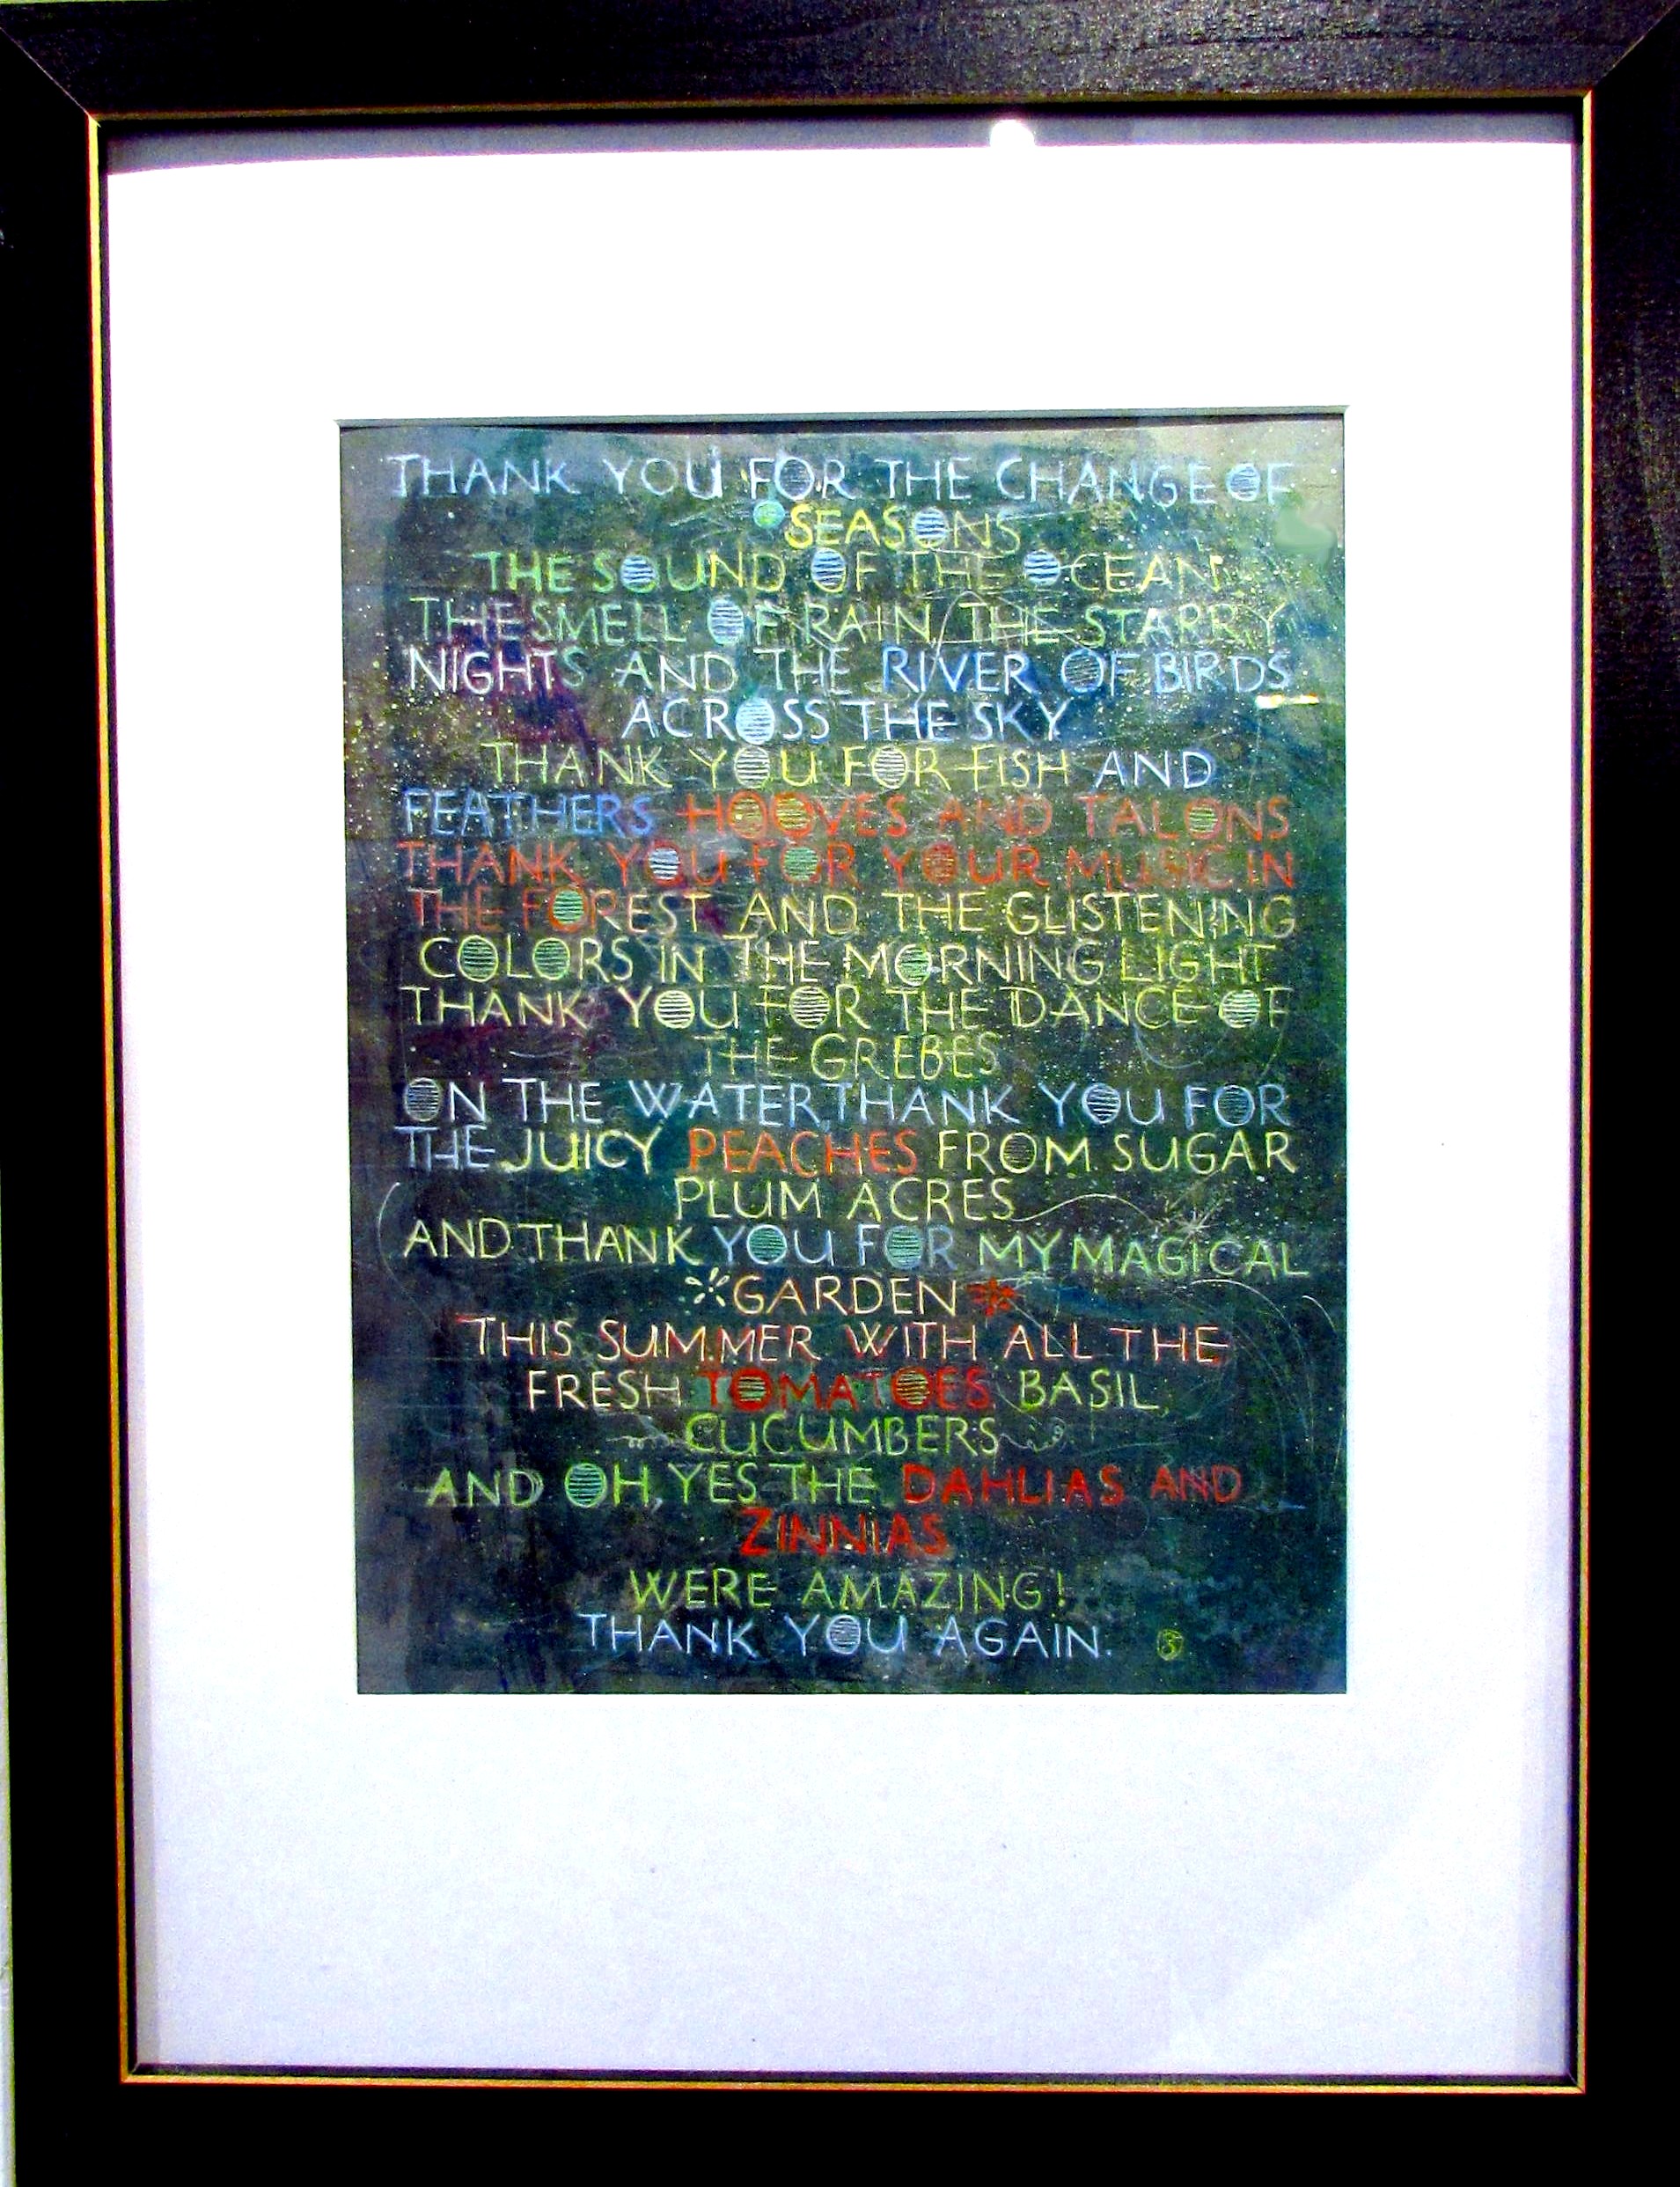 THANK YOU FOR THE CHANGE OF
SEASONS
THE SOUND OF THE OCEAN
THE SMELL OF RAIN, THE STARRY
NIGHTS AND THE RIVER OF BIRDS
ACROSS THE SKY
THANK YOU FOR FISH AND
FEATHERS HOOVES AND TALONS
THANK YOU FOR YOUR MUSIC IN
THE FOREST AND THE GLISTENING
COLORS IN THE MORNING LIGHT
THANK YOU FOR THE DANCE OF
THE GREBES
ON THE WATER, THANK YOU FOR
THE JUICY PEACHES FROM SUGAR
PLUM ACRES
AND THANK YOU FOR MY MAGICAL
GARDEN
THIS SUMMER WITH ALL THE
FRESH TOMATOES, BASIL,
CUCUMBERS
AND OH, YES THE DAHLIAS AND
ZINNIAS
WERE AMAZING!
THANK YOU AGAIN.